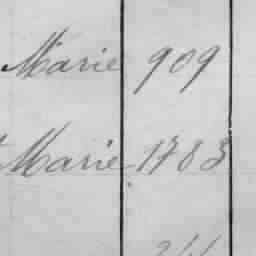 Marie 909
Marie 1783